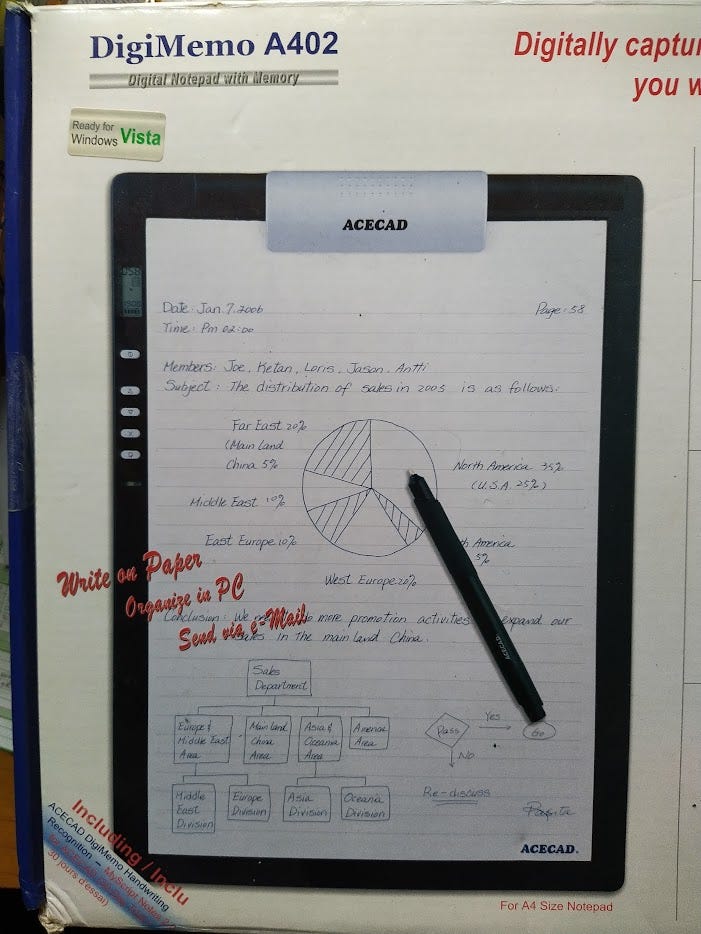 DigiMemo A402
Digital Notepad with Memory
Digitally captur
you w
Ready for
Windows Vista
ACECAD
Date: Jan. 7. 2006
Page: 58
Time: Pm 02:00
Members: Joe, Ketan, Loris, Jason, Antti
Subject: The distribution of sales in 2005 is as follows:
Far East 20%
(Main land
China 5%
North America 35%
(U.S.A. 25%)
Middle East 10%
East Europe 10%
th America
5%
West Europe 20%
Write on Paper
Organize in PC
Send via e-Mail
Conclusion: We more promotion activities expand our
sales in the main land China.
Sales
Department
Europe &
Middle East
Area
Main land
China
Area
Asia &
Oceania
Area
America
Area
Pass
Yes
Go
No
Middle
East
Division
Europe
Division
Asia
Division
Oceania
Division
Re-discuss
ACECAD.
Including / Inclu
ACECAD DigiMemo Handwriting
Recognition - MyScript Note
30 jours d'essai)
For A4 Size Notepad
ACECAD